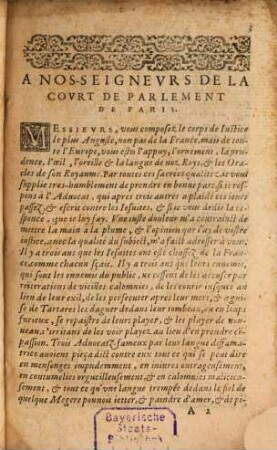 A NOS-SEIGNEVRS DE LA
COVRT DE PARLEMENT
DE PARIS.
MESSIEVRS, vous composez le corps de Iustice
le plus Auguste, non pas de la France, mais de tou-
te l'Europe, vous estes l'appuy, l'ornement, la pru-
dence, l'œil, l'oreille & la langue de noz Roys, & les Ora-
cles de son Royaume. Par toutes ces sacrees qualitez ie vous
supplie tres-humblement de prendre en bonne part, si ie res-
pons à l'Aduocat, qui apres trois autres a plaidé ces iours
passez, & escrit contre les Iesuites, & si ie vous dedie la res-
ponce, que ie luy fay. Vne iuste douleur m'a contrainct de
mettre la main à la plume, & l'opinion que i'ay de vostre
iustice, auec la qualité du subiect, m'a faict adresser à vous.
Il y a trois ans que les Iesuites ont esté chassez de la Fran-
ce, comme chacun sçait. Il y a trois ans que leurs ennemis,
qui sont les ennemis du public, ne cessent de les accuser par
reiterations de vieilles calomnies, de les courir iusques au
lieu de leur exil, de les persecuter apres leur mort, & à guise
de Tartares les daguer dedans leur tombeau, ou en loups
furieux, se repaistre de leurs playes, & les player de nou-
ueau, s'irritans de les voir playez au lieu d'en prendre cõ-
passion. Trois Aduocatz fameux par leurs langue diffama-
trice auoient pieça dict contre eux tout ce qui se peut dire
en mensonges impudemment, en iniures outrageusement,
en contumelies orgueilleusement, & en calomnies malicieu-
sement, & tout ce qu'vne langue trempée dedans le fiel de
quelque Megere pouuoit ietter, & paindre d'amer, & de pi-
A 2
Bayerische
Staats-
Bibliothek